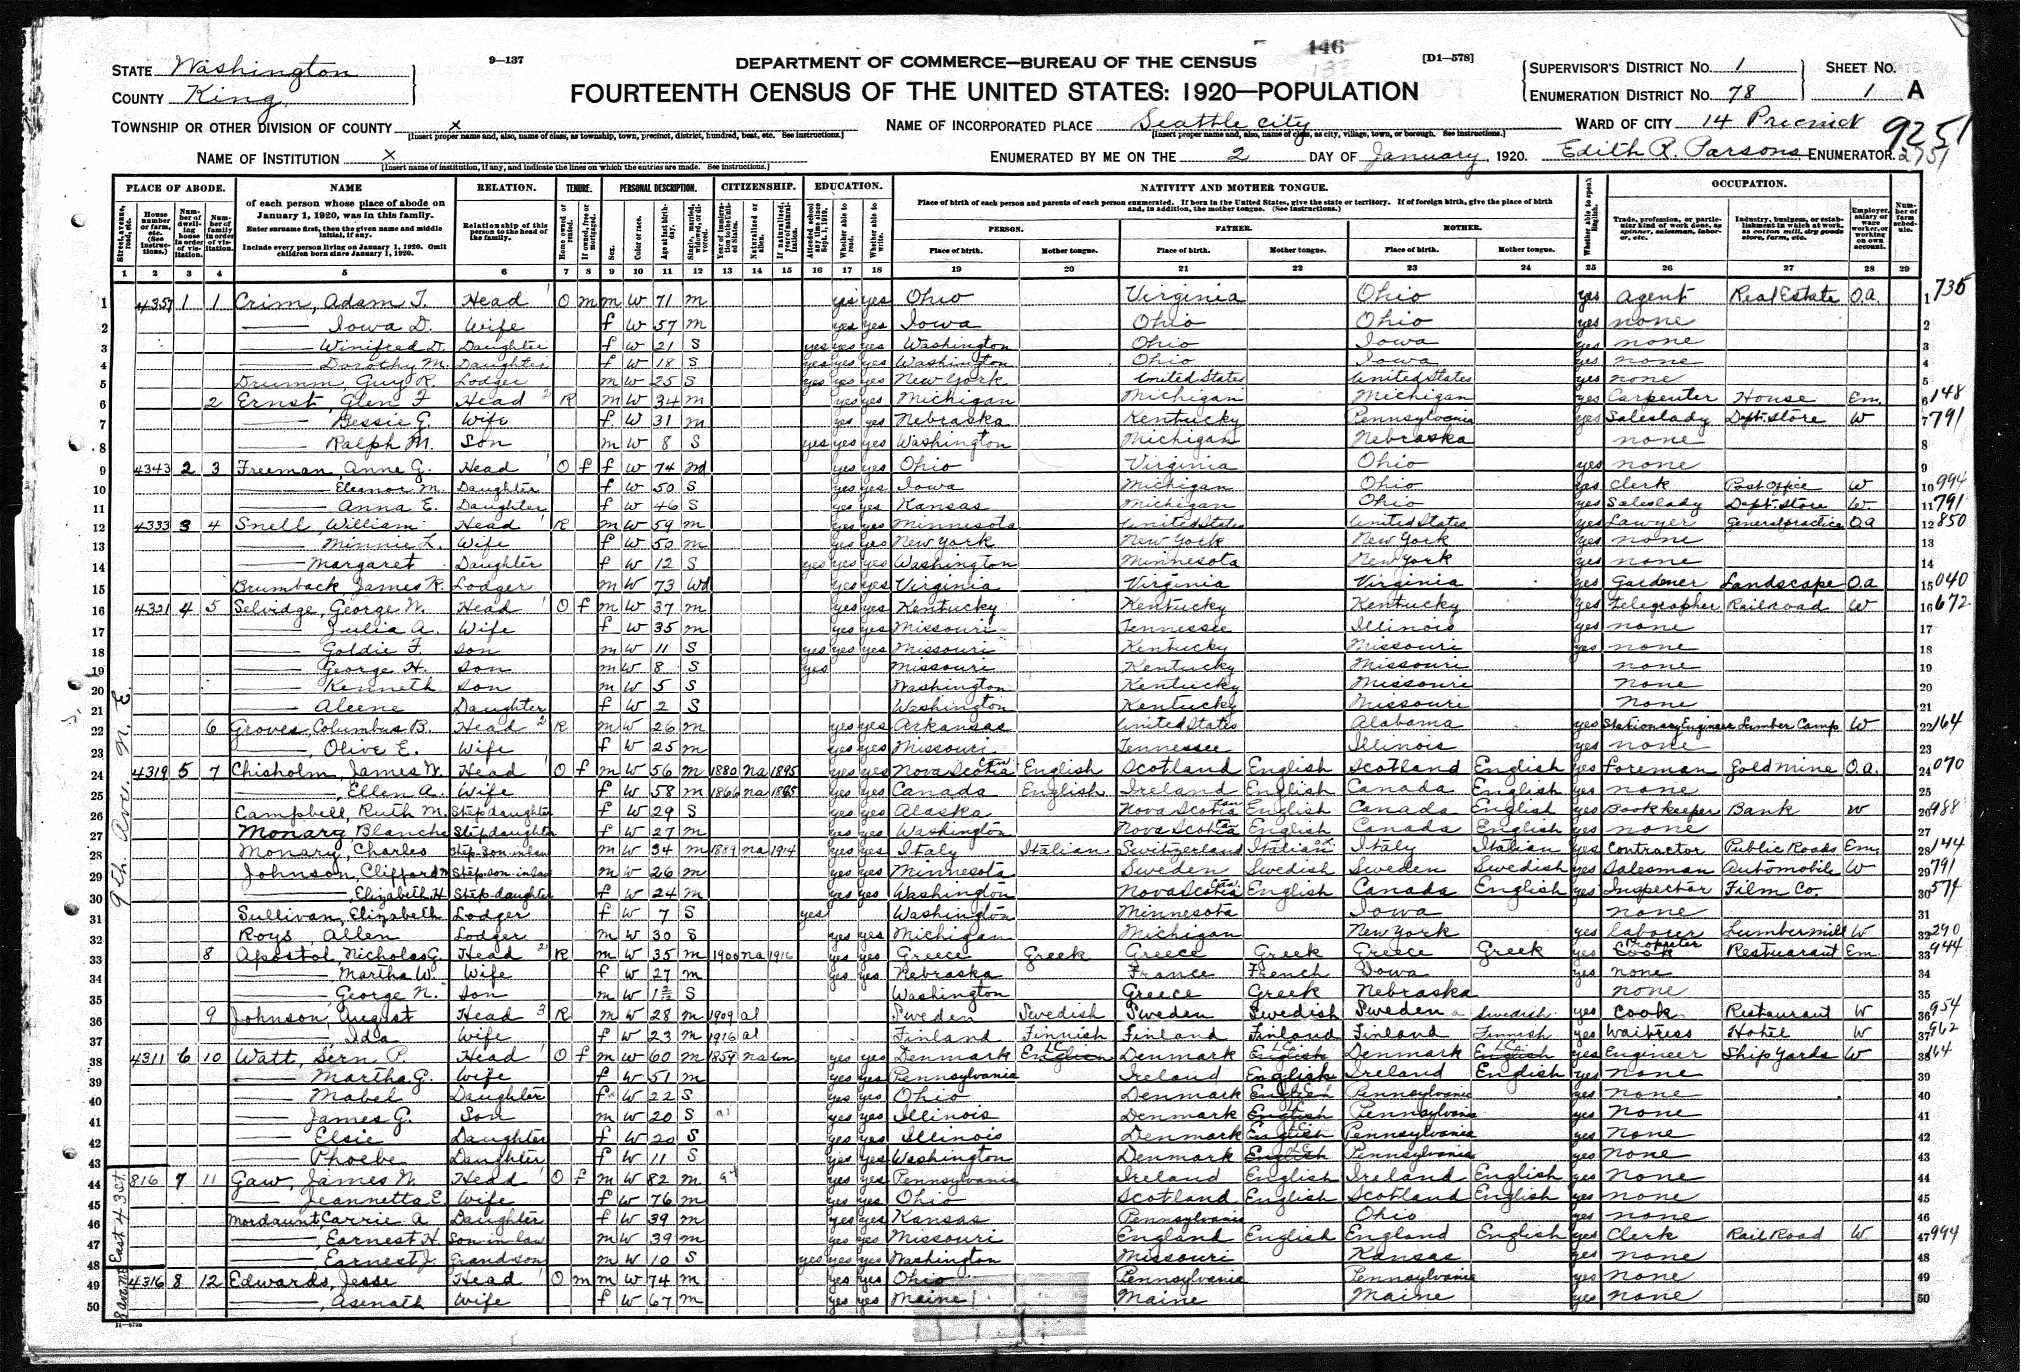 146
9—137 DEPARTMENT OF COMMERCE—BUREAU OF THE CENSUS [D1—578]
STATE Washington
COUNTY King
FOURTEENTH CENSUS OF THE UNITED STATES: 1920—POPULATION
SUPERVISOR'S DISTRICT NO. 1 SHEET NO.
ENUMERATION DISTRICT NO. 78 1 A
TOWNSHIP OR OTHER DIVISION OF COUNTY x NAME OF INCORPORATED PLACE Seattle city WARD OF CITY 14 Precinct 9251
[Insert proper name and, also, name of class, as township, town, precinct, district, hundred, beat, etc. See instructions.] [Insert proper name and, also, name of class, as city, village, town, or borough. See instructions.]
NAME OF INSTITUTION x ENUMERATED BY ME ON THE 2 DAY OF January, 1920. Edith R. Parsons ENUMERATOR.
[Insert name of institution, if any, and indicate the lines on which the entries are made. See instructions.]
PLACE OF ABODE. NAME RELATION. TENURE. PERSONAL DESCRIPTION. CITIZENSHIP. EDUCATION. NATIVITY AND MOTHER TONGUE. OCCUPATION.
of each person whose place of abode on January 1, 1920, was in this family.
Enter surname first, then the given name and middle initial, if any.
Include every person living on January 1, 1920. Omit children born since January 1, 1920.
Relationship of this person to the head of the family.
Place of birth of each person and parents of each person enumerated. If born in the United States, give the state or territory. If of foreign birth, give the place of birth and, in addition, the mother tongue. (See instructions.)
PERSON. FATHER. MOTHER.
Place of birth. Mother tongue. Place of birth. Mother tongue. Place of birth. Mother tongue.
1 2 3 4 5 6 7 8 9 10 11 12 13 14 15 16 17 18 19 20 21 22 23 24 25 26 27 28 29
1 4357 1 1 Crim, Adam T. Head O m m W 71 m yes yes Ohio Virginia Ohio yes agent Real Estate O.a. 1 735
2 Iowa D. Wife f W 57 m yes yes Iowa Ohio Ohio yes none 2
3 Winifred D. Daughter f W 21 S yes yes yes Washington Ohio Iowa yes none 3
4 Dorothy M. Daughter f W 18 S yes yes yes Washington Ohio Iowa yes none 4
5 Drumm, Guy R. Lodger m W 25 S yes yes yes New York United States United States yes none 5
6 2 Ernst, Glen F Head 2 R m W 34 m yes yes Michigan Michigan Michigan yes Carpenter House Em. 6 148
7 Bessie G. Wife f W 31 m yes yes Nebraska Kentucky Pennsylvania yes Saleslady Dept. Store W 7 791
8 Ralph M. Son m W 8 S yes yes yes Washington Michigan Nebraska none 8
9 4343 2 3 Freeman, Anne G. Head O f f W 74 wd yes yes Ohio Virginia Ohio yes none 9
10 Eleanor M. Daughter f W 50 S yes yes Iowa Michigan Ohio yes Clerk Post Office W 10 994
11 Anna E. Daughter f W 46 S yes yes Kansas Michigan Ohio yes Saleslady Dept. Store W 11 791
12 4333 3 4 Snell, William Head R m W 59 m yes yes Minnesota United States United States yes Lawyer General practice O.a 12 850
13 Minnie L. Wife f W 50 m yes yes New York New York New York yes none 13
14 Margaret Daughter f W 12 S yes yes yes Washington Minnesota New York yes none 14
15 Brumback James R. Lodger m W 73 Wd yes yes Virginia Virginia Virginia yes Gardener Landscape O.a 15 040
16 4321 4 5 Selvidge, George W. Head O f m W 37 m yes yes Kentucky Kentucky Kentucky yes telegrapher Railroad W 16 672
17 Julia A. Wife f W 35 m yes yes Missouri Tennessee Illinois yes none 17
18 Goldie F. son m W 11 S yes yes yes Missouri Kentucky Missouri yes none 18
19 George H. son m W 8 S yes Missouri Kentucky Missouri none 19
20 Kenneth son m W 5 S Washington Kentucky Missouri none 20
21 Aleene Daughter f W 2 S Washington Kentucky Missouri none 21
22 6 Groves, Columbus B. Head 2 R m W 26 m yes yes Arkansas United States Alabama yes Stationary Engineer Lumber Camp W 22 164
23 Olive E. Wife f W 25 m yes yes Missouri Tennessee Illinois yes none 23
24 4319 5 7 Chisholm, James W. Head O f m W 56 m 1880 na 1895 yes yes Nova Scotia English Scotland English Scotland English yes foreman Gold mine O.a. 24 070
25 Ellen A. Wife f W 58 m 1866 na 1895 yes yes Canada English Ireland English Canada English yes none 25
26 Campbell, Ruth M. Stepdaughter f W 29 S yes yes Alaska Nova Scotia English Canada English yes Bookkeeper Bank W 26 988
27 Monary Blanche Stepdaughter f W 27 m yes yes Washington Nova Scotia English Canada English yes none 27
28 Monary, Charles Step-son-in law m W 34 m 1889 na 1914 yes yes Italy Italian Switzerland Italian Italy Italian yes Contractor Public Roads Em. 28 144
29 Johnson, Clifford M Step-son-in law m W 26 m yes yes Minnesota Sweden Swedish Sweden Swedish yes Salesman Automobile W 29 791
30 Elizabeth H Step-daughter f W 24 m yes yes Washington Nova Scotia English Canada English yes Inspector Film Co. 30 574
31 Sullivan, Elizabeth Lodger f W 7 S yes Washington Minnesota Iowa none 31
32 Roys, Allen Lodger m W 30 S yes yes Michigan Michigan New York yes labourer Lumbermill W 32 290
33 8 Apostol, Nicholas G. Head 2 R m W 35 m 1900 na 1916 yes yes Greece Greek Greece Greek Greece Greek yes Cook Proprieter Restuarant Em 33 944
34 Martha W. Wife f W 27 m yes yes Nebraska France French Iowa yes none 34
35 George N. Son m W S Washington Greece Greek Nebraska none 35
36 9 Johnson, August Head 3 R m W 28 m 1909 al Sweden Swedish Sweden Swedish Sweden Swedish yes Cook Restaurant W 36 954
37 Ida Wife f W 23 m 1916 al Finland Finnish Finland Finland Finland Finnish yes Waitress Hotel W 37 962
38 4311 6 10 Watt, Sern P. Head O f m W 60 m 1859 na un yes yes Denmark English Denmark English Denmark English yes Engineer Ship Yards W 38 164
39 Martha G. Wife f W 51 m yes yes Pennsylvania Ireland English Ireland English yes none 39
40 Mabel Daughter f W 22 S yes yes Ohio Denmark English Pennsylvania yes none 40
41 James G. Son m W 20 S yes yes Illinois Denmark English Pennsylvania yes none 41
42 Elsie Daughter f W 20 S yes yes Illinois Denmark English Pennsylvania yes none 42
43 Phoebe Daughter f W 11 S yes yes Washington Denmark English Pennsylvania yes none 43
44 816 7 11 Gaw, James W. Head O f m W 82 m yes yes Pennsylvania Ireland English Ireland English yes none 44
45 Jeannetta E. Wife f W 76 m yes yes Ohio Scotland English Scotland English yes none 45
46 Mordaunt, Carrie A Daughter f W 39 m yes yes Kansas Pennsylvania Ohio yes none 46
47 Earnest H. Son in law m W 39 m yes yes Missouri England English England English yes Clerk Rail Road W 47 994
48 Earnest J. Grandson m W 10 S yes yes yes Washington Missouri Kansas yes none 48
49 4316 8 12 Edwards, Jesse Head O m m W 74 m yes yes Ohio Pennsylvania Pennsylvania yes none 49
50 Asenath Wife f W 67 m yes yes Maine Maine Maine yes none 50
9th Ave. N. E
East 43 St.